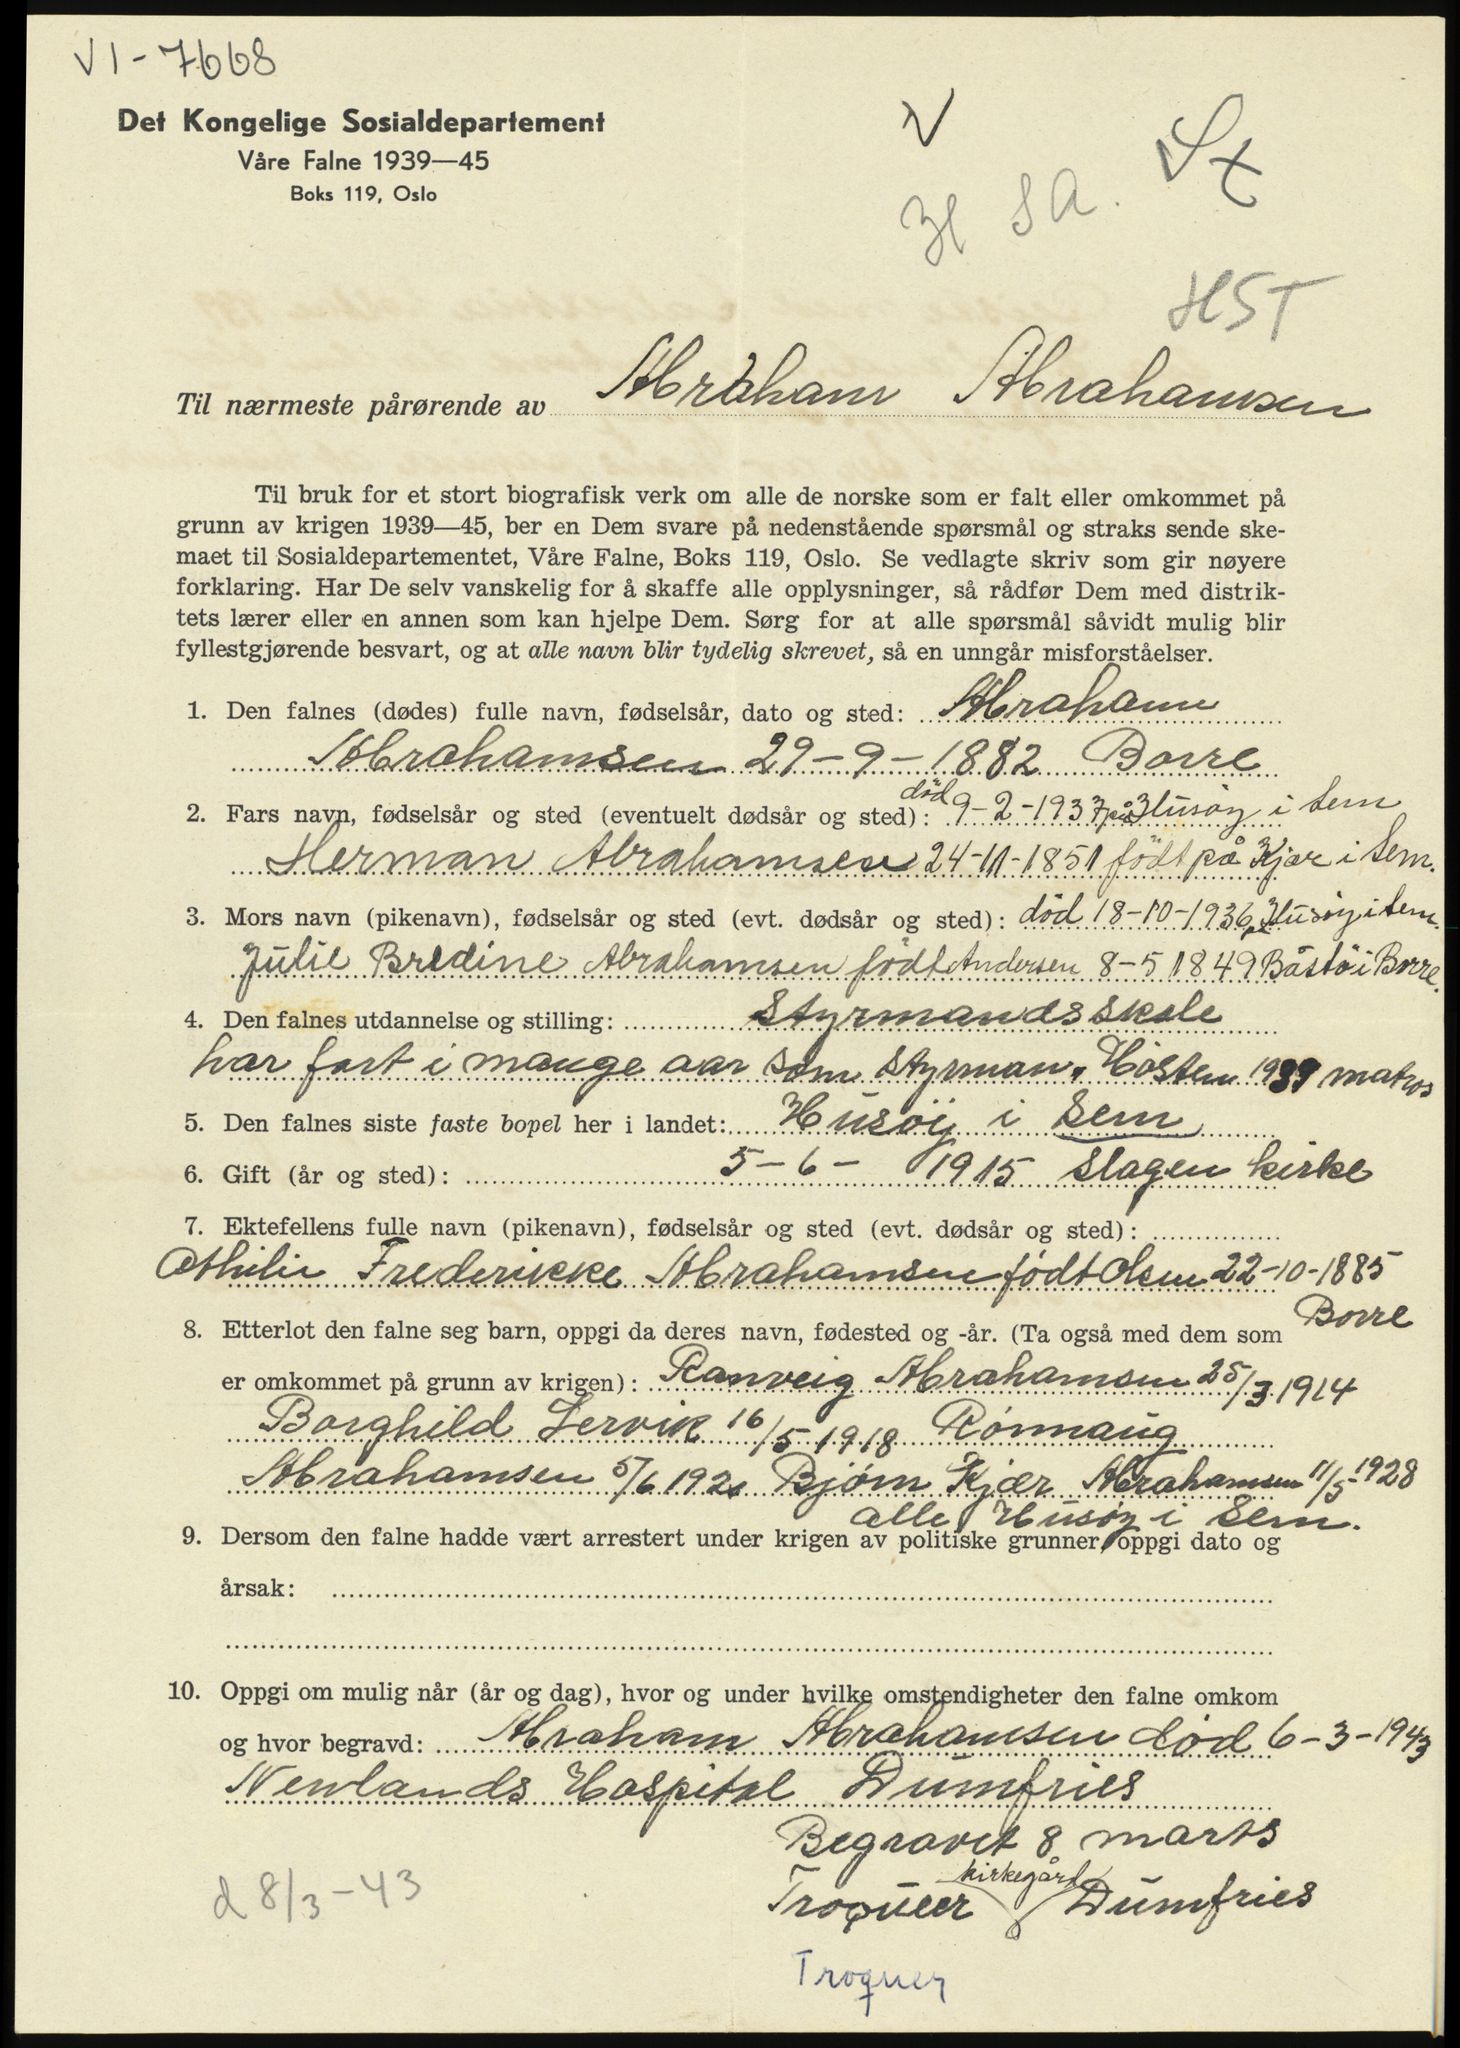 VI-7668
Det Kongelige Sosialdepartement
Våre Falne 1939—45
Boks 119, Oslo
V
H SA. St
HST
Til nærmeste pårørende av Abraham Abrahamsen
Til bruk for et stort biografisk verk om alle de norske som er falt eller omkommet på
grunn av krigen 1939—45, ber en Dem svare på nedenstående spørsmål og straks sende ske-
maet til Sosialdepartementet, Våre Falne, Boks 119, Oslo. Se vedlagte skriv som gir nøyere
forklaring. Har De selv vanskelig for å skaffe alle opplysninger, så rådfør Dem med distrik-
tets lærer eller en annen som kan hjelpe Dem. Sørg for at alle spørsmål såvidt mulig blir
fyllestgjørende besvart, og at alle navn blir tydelig skrevet, så en unngår misforståelser.
1. Den falnes (dødes) fulle navn, fødselsår, dato og sted: Abraham
Abrahamsen 29-9-1882 Borre
2. Fars navn, fødselsår og sted (eventuelt dødsår og sted): död 9-2-1937 på Husöy i Sem
Herman Abrahamsen 24-11-1851 född på Kjær i Sem.
3. Mors navn (pikenavn), fødselsår og sted (evt. dødsår og sted): död 18-10-1936 på Husöy i Sem.
Julie Bredine Abrahamsen född Andersen 8-5 1849 Bastö i Borre.
4. Den falnes utdannelse og stilling: Styrmandsskole
har fart i mange aar som styrman. Hösten 1939 matros
5. Den falnes siste faste bopel her i landet: Husöy i Sem
6. Gift (år og sted): 5-6- 1915 Slagen kirke
7. Ektefellens fulle navn (pikenavn), fødselsår og sted (evt. dødsår og sted):
Othilie Frederikke Abrahamsen född Olsen 22-10-1885
Borre
8. Etterlot den falne seg barn, oppgi da deres navn, fødested og -år. (Ta også med dem som
er omkommet på grunn av krigen): Ranveig Abrahamsen 25/3 1914
Borghild Lervik 16/5 1918 Rönnaug
Abrahamsen 5/6 192 Björn Kjær Abrahamsen 11/5-1928
alle Husöy i Sem.
9. Dersom den falne hadde vært arrestert under krigen av politiske grunner, oppgi dato og
årsak:
10. Oppgi om mulig når (år og dag), hvor og under hvilke omstendigheter den falne omkom
og hvor begravd: Abraham Abrahamsen död 6-3-1943
Newlands Hospital Dumfries
Begravet 8 marts
Troqueer kirkegård Dumfries
d 8/3-43
Troquer